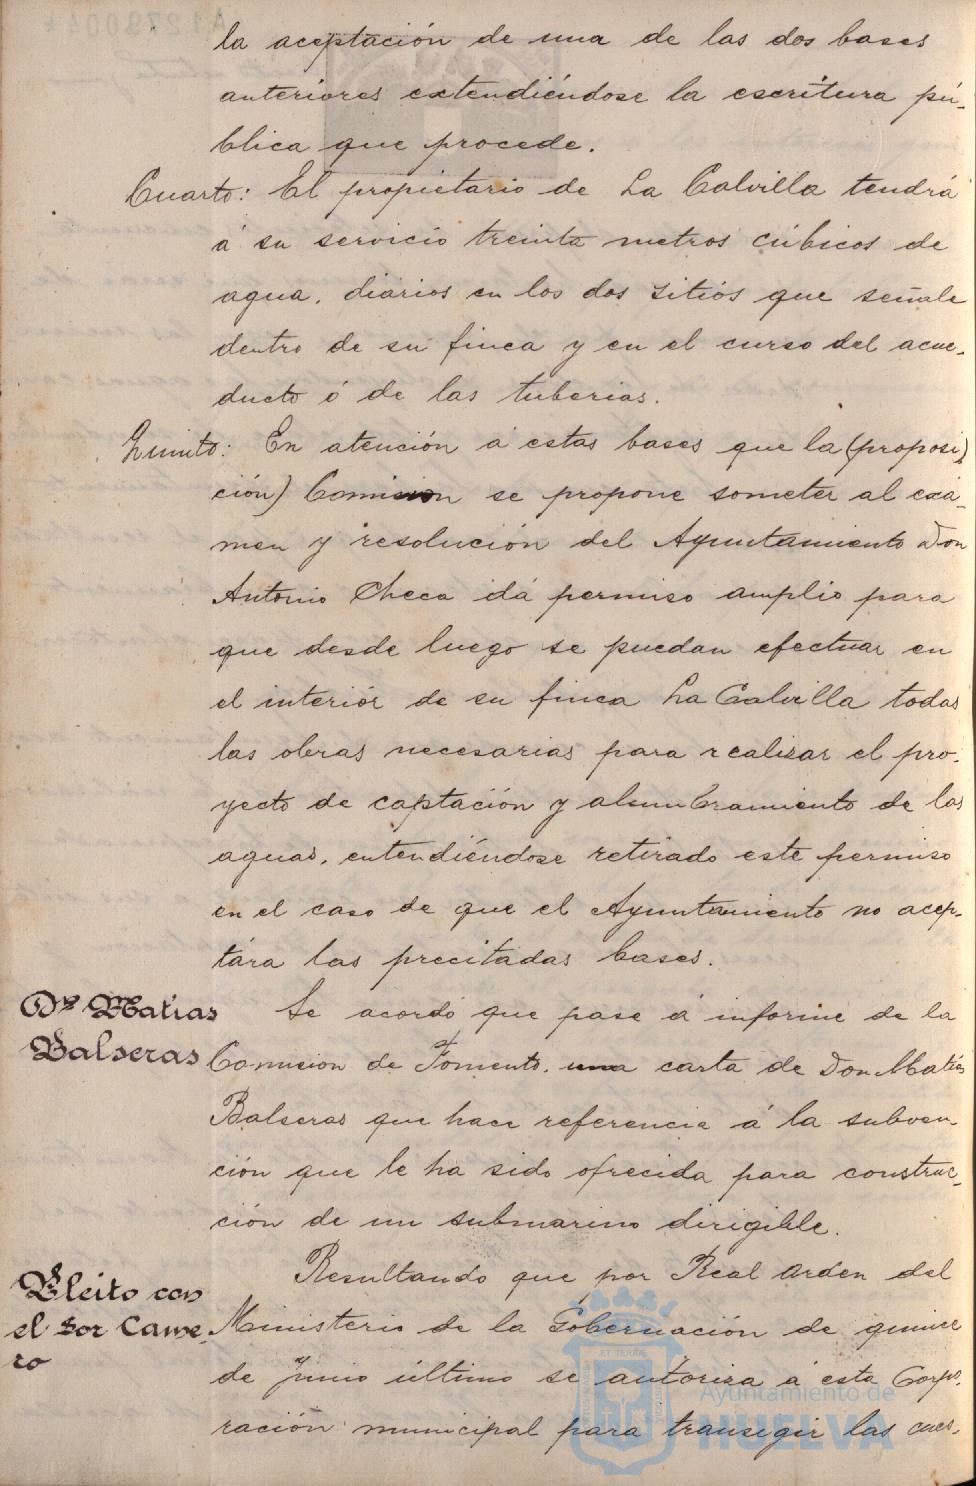 la aceptación de una de las dos bases
anteriores extendiéndose la escritura pú-
blica que procede.
Cuarto: El propietario de La Calvilla tendrá
á su servicio treinta metros cúbicos de
agua, diarios en los dos sitios que señale
dentro de su finca y en el curso del acue-
ducto ó de las tuberias.
Quinto: En atención á estas bases que la (proposi)
ción) Comision se propone someter al exá-
men y resolución del Ayuntamiento Don
Antonio Checa dá permiso amplio para
que desde luego se puedan efectuar en
el interior de su finca La Calvilla todas
las obras necesarias para realizar el pro-
yecto de captación y alumbramiento de las
aguas, entendiéndose retirado este permiso
en el caso de que el Ayuntamiento no acep-
tára las precitadas bases.
Dn Matias
Balseras
Se acordó que pase á informe de la
Comision de Fomento, una carta de Don Matias
Balseras que hace referencia á la subven
ción que le ha sido ofrecida para construc-
ción de un submarino dirigible.
Pleito con
el Sor Came-
ro
Resultando que por Real orden del
Ministerio de la Gobernación de quince
de Junio último se autoriza á esta Corpo-
ración municipal para transigir las cues-
Ayuntamiento de
HUELVA